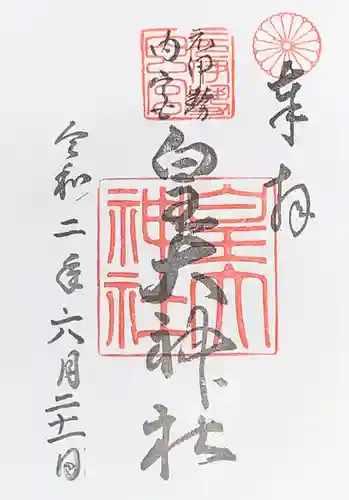 奉拝
元伊勢
内宮
皇大神社
皇大
神社
令和二年六月二十一日